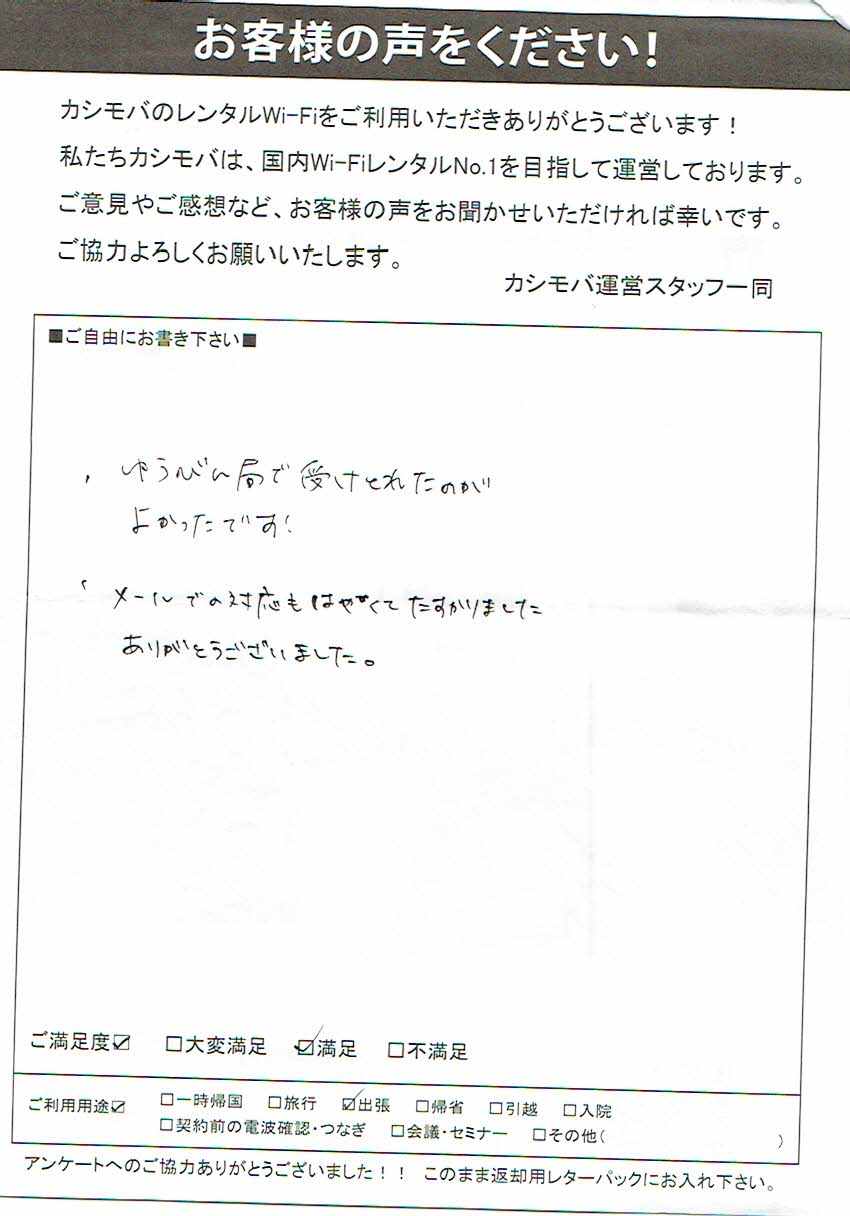 お客様の声をください!
カシモバのレンタルWi-Fiをご利用いただきありがとうございます！
私たちカシモバは、国内Wi-FiレンタルNo.1を目指して運営しております。
ご意見やご感想など、お客様の声をお聞かせいただければ幸いです。
ご協力よろしくお願いいたします。
カシモバ運営スタッフ一同
■ご自由にお書き下さい■
・ゆうびん局で受けとれたのが
よかったです!
・メールでの対応もはやくてたすかりました
ありがとうございました。
ご満足度☑ □大変満足 ☑満足 □不満足
ご利用用途☑ □一時帰国 □旅行 ☑出張 □帰省 □引越 □入院
□契約前の電波確認・つなぎ □会議・セミナー □その他( )
アンケートへのご協力ありがとうございました！！ このまま返却用レターパックにお入れ下さい。